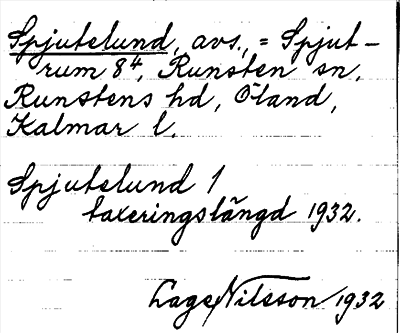 Spjutelund, avs., = Spjut-
rum 8⁴, Runsten sn,
Runstens hd, Öland,
Kalmar l.
Spjutelund 1
taxeringslängd 1932.
Lage Nilsson 1932